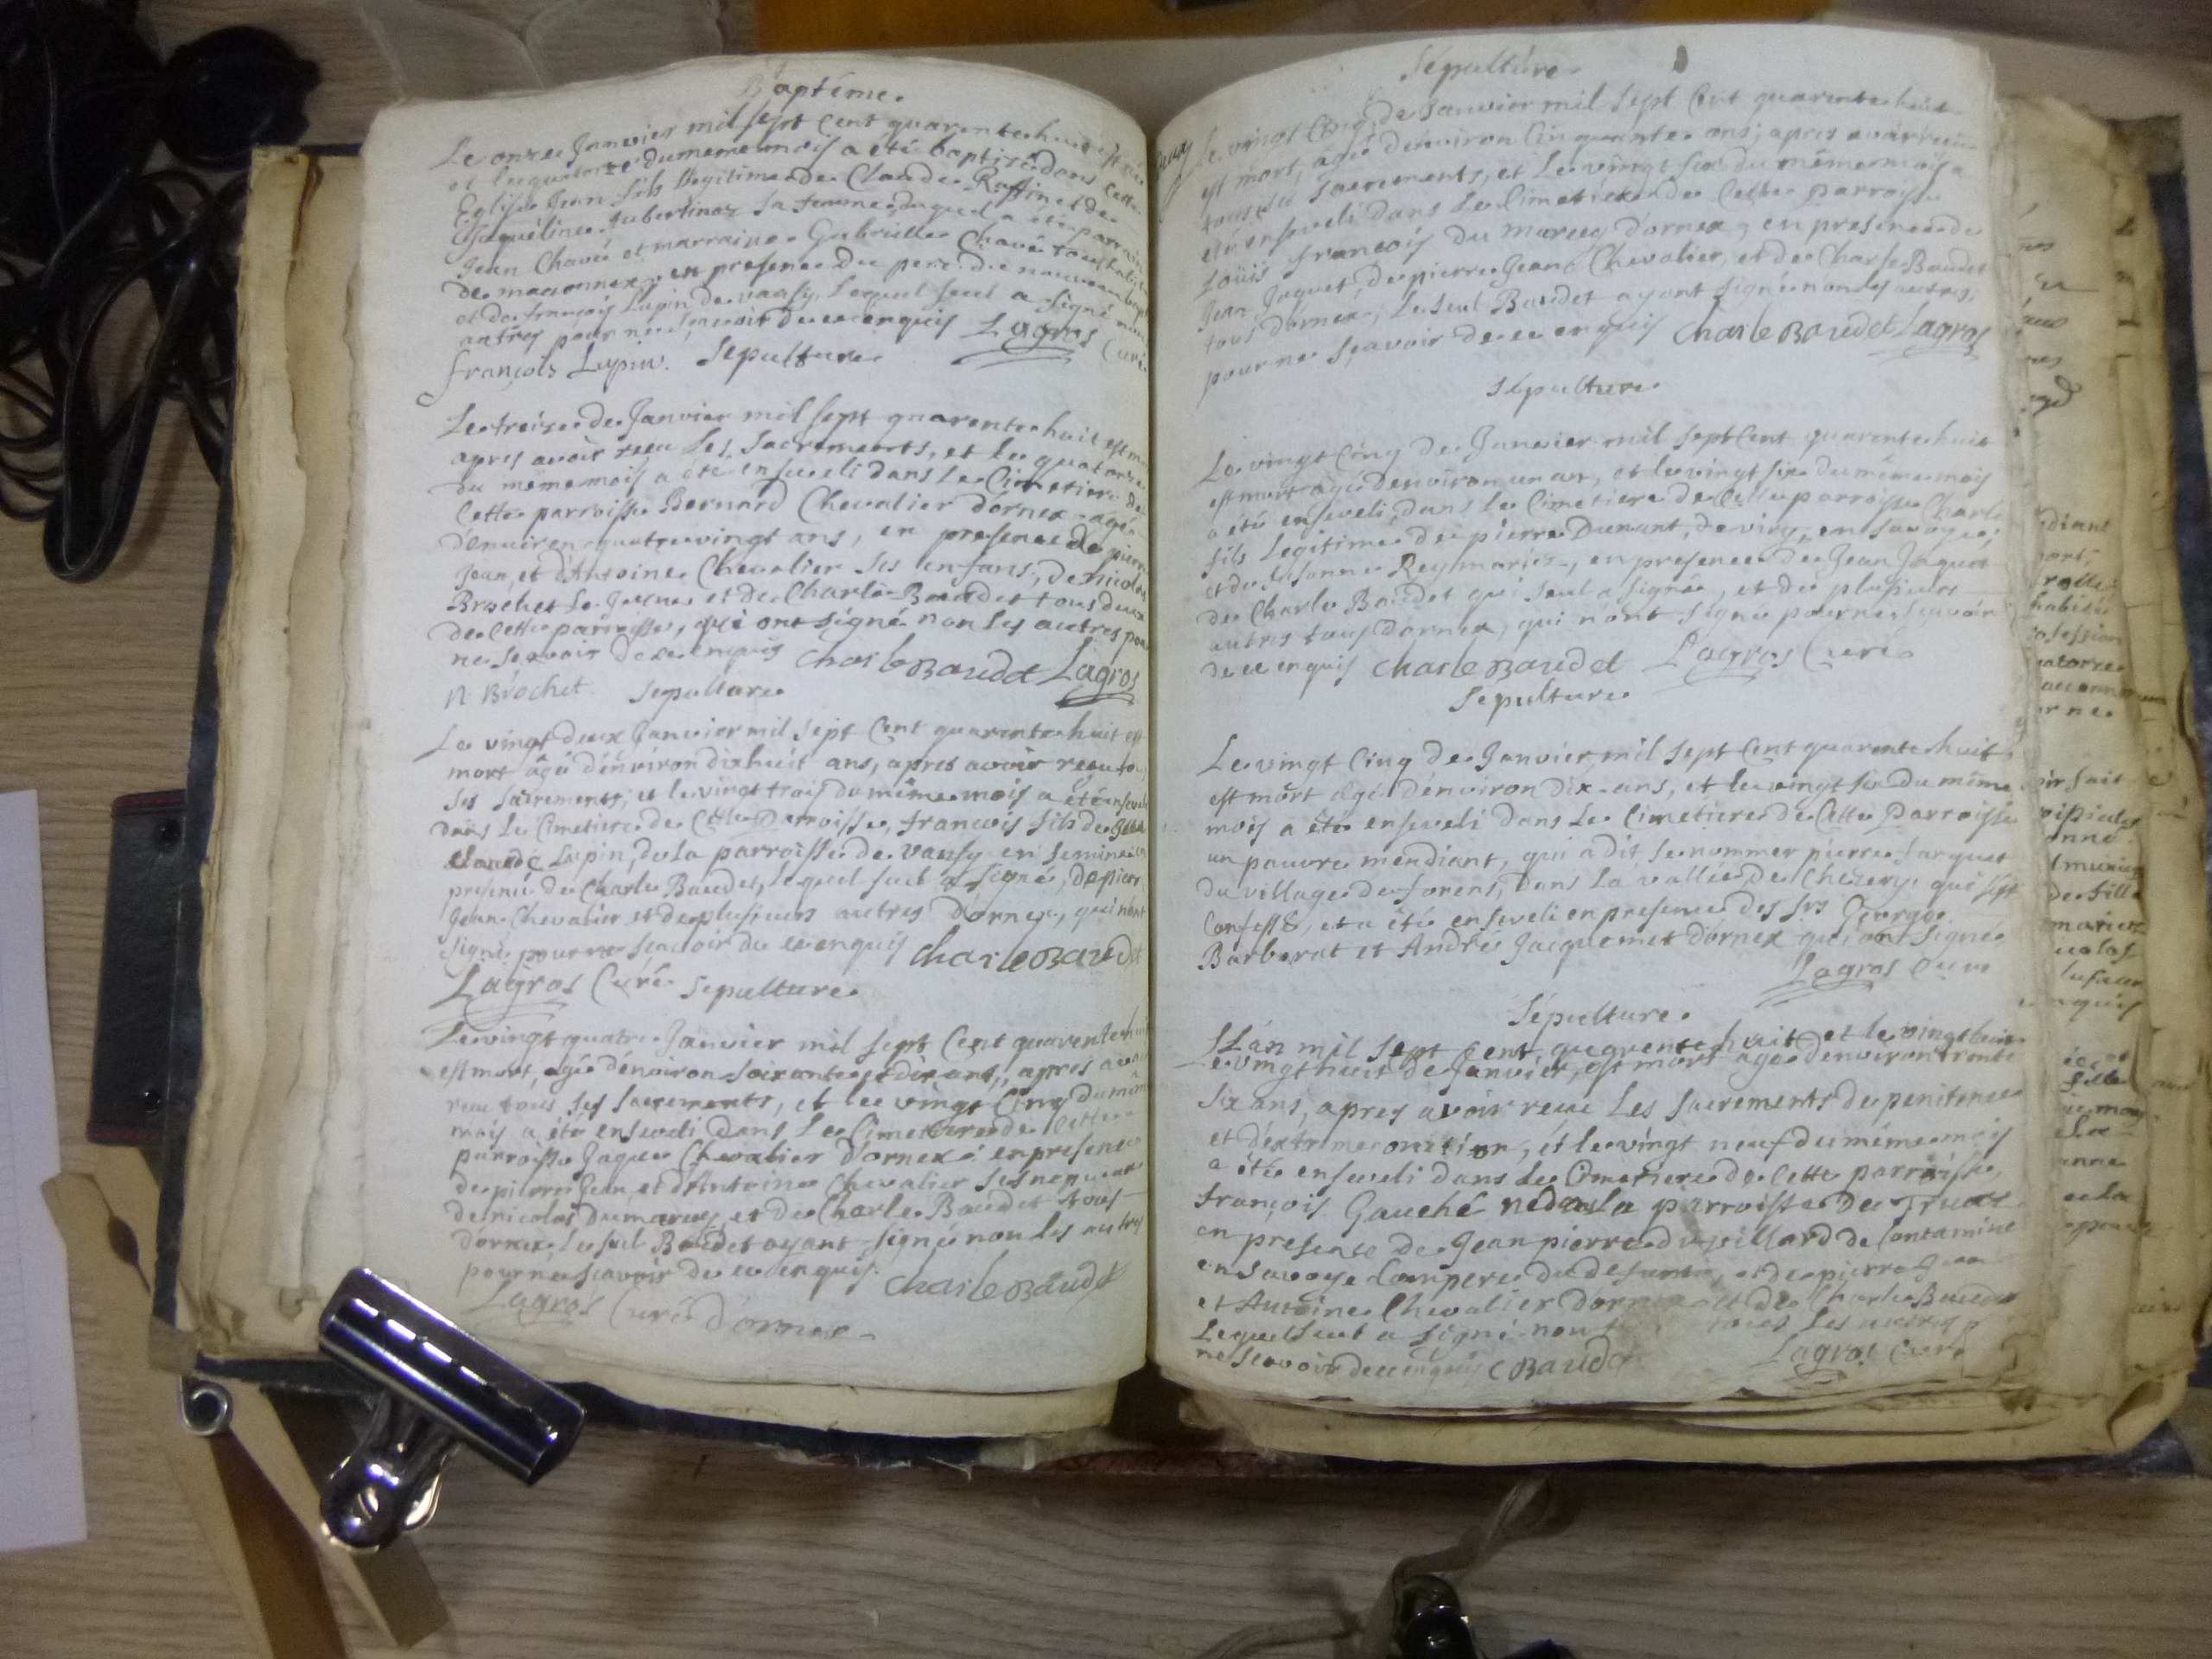 Baptéme
Le onze Janvier mil sept Cent quarente huit est né
et le quatorze du meme mois a eté baptisé dans Cette
Eglise Jean fils legitime de Claude Raffin et de
Jaqueline Jubertinoz sa femme, duquel a été parrain
Jean Chavé et marraine Gabrielle Chavé tous habit
de maconnex, en presence du pere du nouveau bapt
et de françois Lupin de vausy, lequel seul a signé non
autres pour ne sçavoir de ce enquis Lagros Curé
françois Lupin. Sepulture
Le treize de Janvier mil sept quarente huit est m
apres avoir reçu les Sacrements, et le quatorze
du même mois a été enseveli dans le Cimetiere de
Cette parroisse Bernard Chevalier d'ornex agé
d'environ quatre vingt ans, en presence de pierre
Jean, et d'Antoine Chevalier ses enfans, de nicolas
Brochet le Jeune et de Charle Baudet tous deux
de Cette parroisse, qui ont signé non les autres pour
ne sçavoir de ce enquis Charle Baudet Lagros
N Brochet Sepulture
Le vingt deux Janvier mil sept Cent quarente huit est
mort âgé d'environ dixhuit ans, apres avoir reçu to
ses sacrements, et le vingt trois du même mois a été enseveli
dans le Cimetiere de Cette parroisse, françois fils de
claude Lupin, de la parroisse de vausy en
presence de Charle Baudet, lequel seul a signé, de pierre
Jean Chevalier et de plusieurs autres d'ornex, qui n'ont
signé pour ne scavoir de ce enquis Charle Baudet
Lagros Curé Sepulture
Le vingt quatre Janvier mil sept Cent quarente hui
est mort, agé d'environ soixante et dix ans, apres avoi
reçu tous ses sacrements, et le vingt Cinq du même
mois a été enseveli dans le Cimetiere de Cette
parroisse Jaque Chevalier d'ornex en presence
de pierre Jean et d'Antoine Chevalier ses nepveux
de nicolas dumarcy, et de Charle Baudet tous
d'ornex le seul Baudet ayant signé non les autres
pour ne scavoir de ce enquis. Charle Baudet
Lagros Curé d'ornex
Sépulture
Le vingt Cinq de Janvier mil sept Cent quarente huit
est mort, agé d'environ Cinquante ans, apres avoir reçu
tous ses sacrements, et le vingt six du même mois a
eté enseveli dans le Cimetiere de Cette parroisse
Loüis françois du marcy d'ornex, en presence de
Jean Jaquet, de pierre Jean Chevalier, et de Charle Baudet
tous d'ornex, le seul Baudet ayant signé non les autres,
pour ne sçavoir de ce enquis Charle Baudet Lagros
Sépulture
Le vingt Cinq de Janvier mil sept Cent quarente huit
est mort agé d'environ un an, et le vingt six du même mois
a été enseveli, dans le Cimetiere de Cette parroisse Charle
fils legitime de pierre Dunant, de viry, en savoye,
et de Rey mariez, en presence de Jean Jaquet
de Charle Baudet qui seul a signé, et de plusieurs
autres tous d'ornex, qui n'ont signé pour ne scavoir
de ce enquis Charle Baudet Lagros Curé
Sepulture
Le vingt Cinq de Janvier mil sept Cent quarente huit
est mort agé d'environ dix ans, et le vingt six du même
mois a été enseveli dans le Cimetiere de Cette Parroisse
un pauvre mendiant, qui a dit se nommer pierre farquet
du village de forens, dans la vallée de Chezery, qui s'est
Confessé, et a été enseveli en presence des srs George
Barberat et André Jacquemet d'ornex qui ont signé
Lagros Curé
Sépulture
L'an mil sept Cent, quarente huit et le vingt huit
le vingt huit de Janvier, est mort agé d'environ trente
six ans, apres avoir reçu les sacrements de penitence
et d'extreme onction, et le vingt neuf du même mois
a été enseveli dans le Cimetiere de Cette parroisse,
françois Gauché né dans la parroisse de
en presence de Jean pierre de Contamine
en savoye Compere du defunt, et de pierre Jean
et Antoine Chevalier d'ornex et de Charle Baudet
Lequel seul a signé non les autres p
ne scavoir de ce enquis C Baudet Lagros Curé